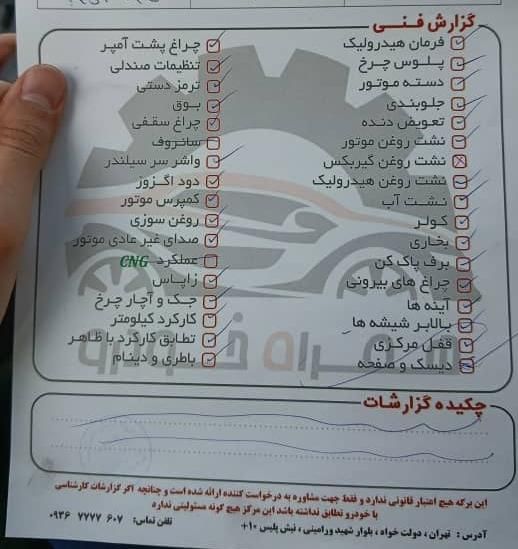 گزارش فنی
فرمان هیدرولیک
پلوس چرخ
دسته موتور
جلوبندی
تعویض دنده
نشت روغن موتور
نشت روغن گیربکس
نشت روغن هیدرولیک
نشت آب
کولر
بخاری
برف پاک کن
چراغ های بیرونی
آینه ها
بالابر شیشه ها
قفل مرکزی
دیسک و صفحه
چراغ پشت آمپر
تنظیمات صندلی
ترمز دستی
بوق
چراغ سقفی
سانروف
واشر سر سیلندر
دود اگزوز
کمپرس موتور
روغن سوزی
صدای غیر عادی موتور
عملکرد CNG
زاپاس
جک و آچار چرخ
کارکرد کیلومتر
تطابق کارکرد با ظاهر
باطری و دینام
چکیده گزارشات
این برگه هیچ اعتبار قانونی ندارد و فقط جهت مشاوره به درخواست کننده ارائه شده است و چنانچه اگر گزارشات کارشناسی
با خودرو تطابق نداشته باشد این مرکز هیچ گونه مسئولیتی ندارد
آدرس : تهران، دولت خواه، بلوار شهید ورامینی، نبش پلیس ۱۰+
تلفن تماس: ۶۰۷ ۷۷۷۷ ۰۹۳۶